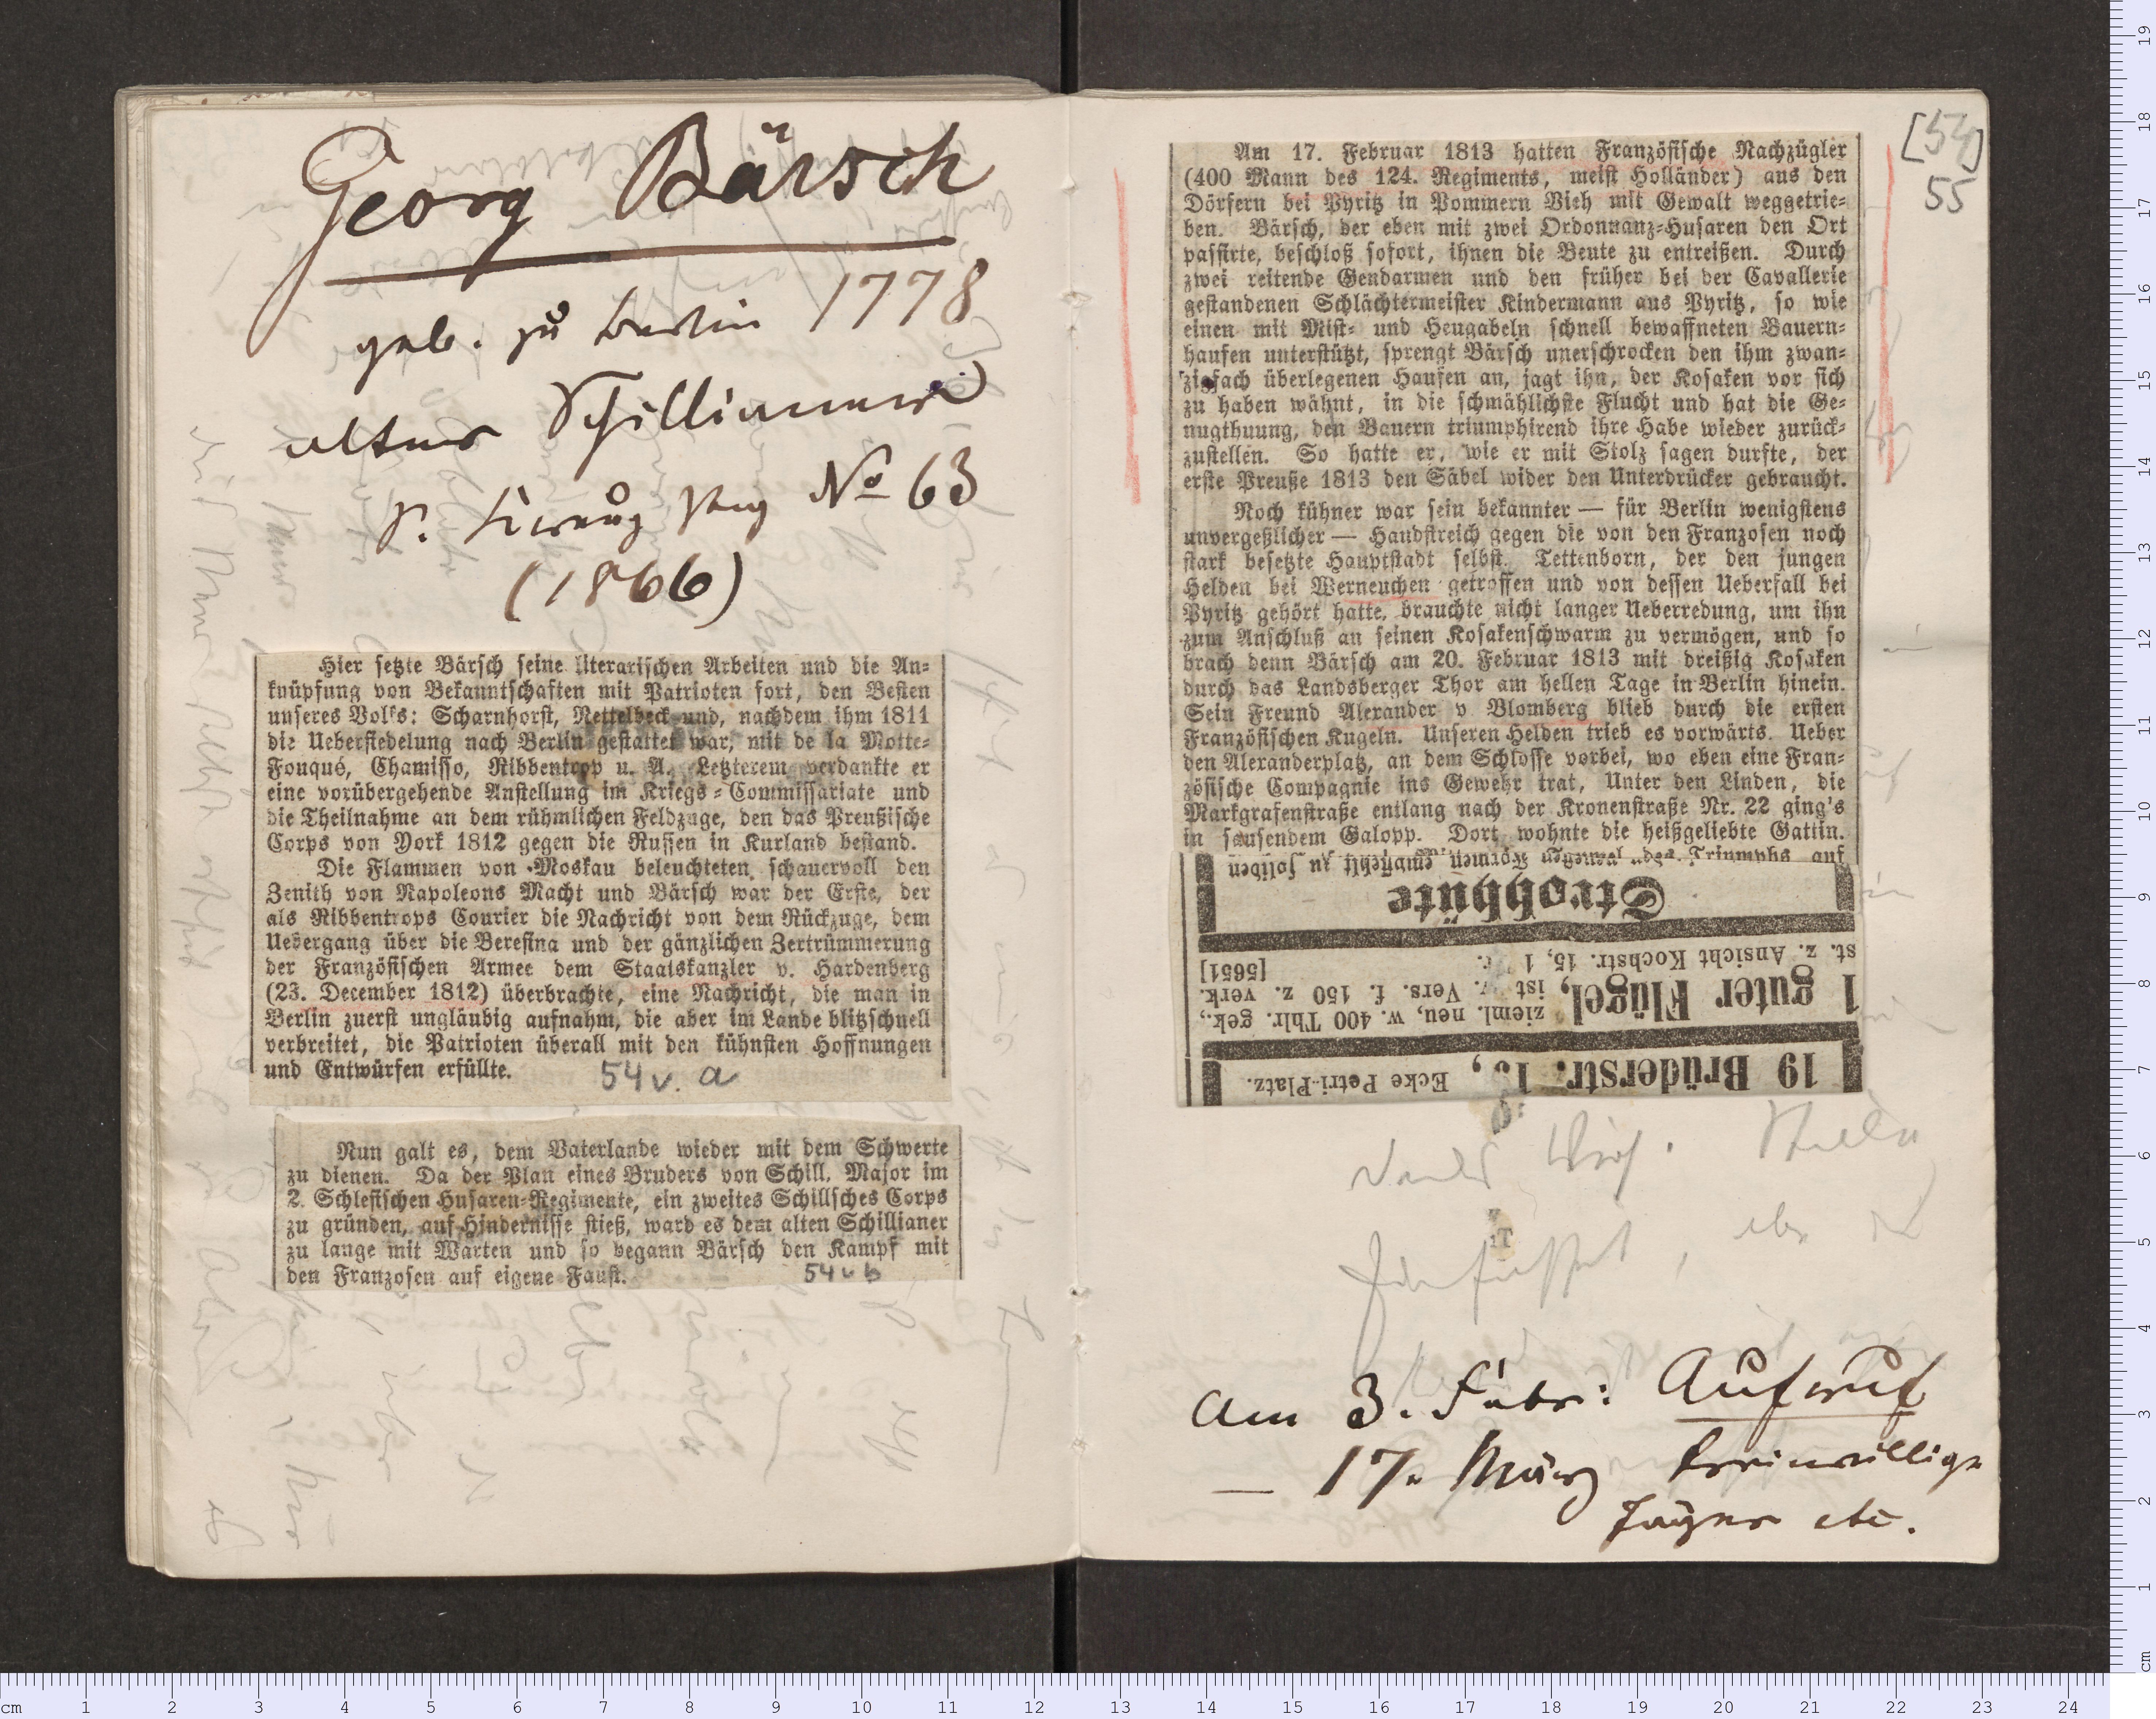 Georg Bärsch
geb. zu Berlin 1778
alter Schillianer
s. Kreuz Ztng No 63
(1866)
Hier setzte Bärsch seine literarischen Arbeiten und die An-
knüpfung von Bekanntschaften mit Patrioten fort, den Besten
unseres Volks: Scharnhorst, Nettelbeck und, nachdem ihm 1811
die Uebersiedelung nach Berlin gestattet war, mit de la Motte-
Fouqué, Chamisso, Ribbentropp u. A. Letzterem verdankte er
eine vorübergehende Anstellung im Kriegs-Commissariate und
die Theilnahme an dem rühmlichen Feldzuge, den das Preußische
Corps von York 1812 gegen die Russen in Kurland bestand.
Die Flammen von Moskau beleuchteten schauervoll den
Zenith von Napoleons Macht und Bärsch war der Erste, der
als Ribbentrops Courier die Nachricht von dem Rückzuge, dem
Uebergang über die Beresina und der gänzlichen Zertrümmerung
der Französischen Armee dem Staatskanzler v. Hardenberg
(23. December 1812) überbrachte, eine Nachricht, die man in
Berlin zuerst ungläubig aufnahm, die aber im Lande blitzschnell
verbreitet, die Patrioten überall mit den kühnsten Hoffnungen
und Entwürfen erfüllte.
54v. a
Nun galt es, dem Vaterlande wieder mit dem Schwerte
zu dienen. Da der Plan eines Bruders von Schill, Major im
2. Schlesischen Husaren-Regimente, ein zweites Schillsches Corps
zu gründen, auf Hindernisse stieß, ward es dem alten Schillianer
zu lange mit Warten und so begann Bärsch den Kampf mit
den Franzosen auf eigene Faust.
54v b
[54]
55
Am 17. Februar 1813 hatten Französische Nachzügler
(400 Mann des 124. Regiments, meist Holländer) aus den
Dörfern bei Pyritz in Pommern Vieh mit Gewalt weggetrie-
ben. Bärsch, der eben mit zwei Ordonnanz-Husaren den Ort
passirte, beschloß sofort, ihnen die Beute zu entreißen. Durch
zwei reitende Gendarmen und den früher bei der Cavallerie
gestandenen Schlächtermeister Kindermann aus Pyritz, so wie
einen mit Mist- und Heugabeln schnell bewaffneten Bauern-
haufen unterstützt, sprengt Bärsch unerschrocken den ihm zwan-
zigfach überlegenen Haufen an, jagt ihn, der Kosaken vor sich
zu haben wähnt, in die schmählichste Flucht und hat die Ge-
nugthuung, den Bauern triumphirend ihre Habe wieder zurück-
zustellen. So hatte er, wie er mit Stolz sagen durfte, der
erste Preuße 1813 den Säbel wider den Unterdrücker gebraucht.
Noch kühner war sein bekannter — für Berlin wenigstens
unvergeßlicher — Handstreich gegen die von den Franzosen noch
stark besetzte Hauptstadt selbst. Tettenborn, der den jungen
Helden bei Werneuchen getroffen und von dessen Ueberfall bei
Pyritz gehört hatte, brauchte nicht langer Ueberredung, um ihn
zum Anschluß an seinen Kosakenschwarm zu vermögen, und so
brach denn Bärsch am 20. Februar 1813 mit dreißig Kosaken
durch das Landsberger Thor am hellen Tage in Berlin hinein.
Sein Freund Alexander v Blomberg blieb durch die ersten
Französischen Kugeln. Unseren Helden trieb es vorwärts. Ueber
den Alexanderplatz, an dem Schlosse vorbei, wo eben eine Fran-
zösische Compagnie ins Gewehr trat, Unter den Linden, die
Markgrafenstraße entlang nach der Kronenstraße Nr. 22 ging's
in sausendem Galopp. Dort wohnte die heißgeliebte Gattin.
Triumphs auf
19 Brüderstr. 19, Ecke Petri-Platz.
1 guter Flügel, zieml. neu, w. 400 Thlr. gek.,
ist Vers. f. 150 z. verk.
st. z. Ansicht Kochstr. 15, 1 [5651]
Strohhüte
Formen empfiehlt in soliden
Am 3. Febr: Aufruf
— 17. März Freiwillige
Jäger etc.